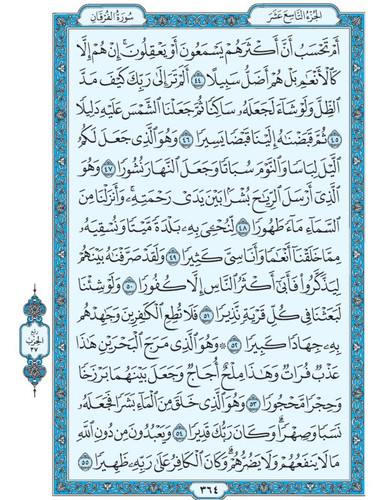 الجزء التاسع عشر
سورة الفرقان
أَمْ تَحْسَبُ أَنَّ أَكْثَرَهُمْ يَسْمَعُونَ أَوْ يَعْقِلُونَ ۚ إِنْ هُمْ إِلَّا
كَالْأَنْعَٰمِ ۖ بَلْ هُمْ أَضَلُّ سَبِيلًا ٤٤ أَلَمْ تَرَ إِلَىٰ رَبِّكَ كَيْفَ مَدَّ
الظِّلَّ وَلَوْ شَآءَ لَجَعَلَهُۥ سَاكِنًا ثُمَّ جَعَلْنَا الشَّمْسَ عَلَيْهِ دَلِيلًا
٤٥ ثُمَّ قَبَضْنَٰهُ إِلَيْنَا قَبْضًا يَسِيرًا ٤٦ وَهُوَ الَّذِى جَعَلَ لَكُمُ
الَّيْلَ لِبَاسًا وَالنَّوْمَ سُبَاتًا وَجَعَلَ النَّهَارَ نُشُورًا ٤٧ وَهُوَ
الَّذِىٓ أَرْسَلَ الرِّيَٰحَ بُشْرًۢا بَيْنَ يَدَىْ رَحْمَتِهِۦ ۚ وَأَنزَلْنَا مِنَ
السَّمَآءِ مَآءً طَهُورًا ٤٨ لِّنُحْۦِىَ بِهِۦ بَلْدَةً مَّيْتًا وَنُسْقِيَهُۥ
مِمَّا خَلَقْنَآ أَنْعَٰمًا وَأَنَاسِىَّ كَثِيرًا ٤٩ وَلَقَدْ صَرَّفْنَٰهُ بَيْنَهُمْ
لِيَذَّكَّرُوا۟ فَأَبَىٰٓ أَكْثَرُ النَّاسِ إِلَّا كُفُورًا ٥٠ وَلَوْ شِئْنَا
لَبَعَثْنَا فِى كُلِّ قَرْيَةٍ نَّذِيرًا ٥١ فَلَا تُطِعِ الْكَٰفِرِينَ وَجَٰهِدْهُم
بِهِۦ جِهَادًا كَبِيرًا ٥٢ وَهُوَ الَّذِى مَرَجَ الْبَحْرَيْنِ هَٰذَا
عَذْبٌ فُرَاتٌ وَهَٰذَا مِلْحٌ أُجَاجٌ وَجَعَلَ بَيْنَهُمَا بَرْزَخًا
وَحِجْرًا مَّحْجُورًا ٥٣ وَهُوَ الَّذِى خَلَقَ مِنَ الْمَآءِ بَشَرًا فَجَعَلَهُۥ
نَسَبًا وَصِهْرًا ۗ وَكَانَ رَبُّكَ قَدِيرًا ٥٤ وَيَعْبُدُونَ مِن دُونِ اللَّهِ
مَا لَا يَنفَعُهُمْ وَلَا يَضُرُّهُمْ ۗ وَكَانَ الْكَافِرُ عَلَىٰ رَبِّهِۦ ظَهِيرًا ٥٥
ربع
الحزب
٣٧
٣٦٤